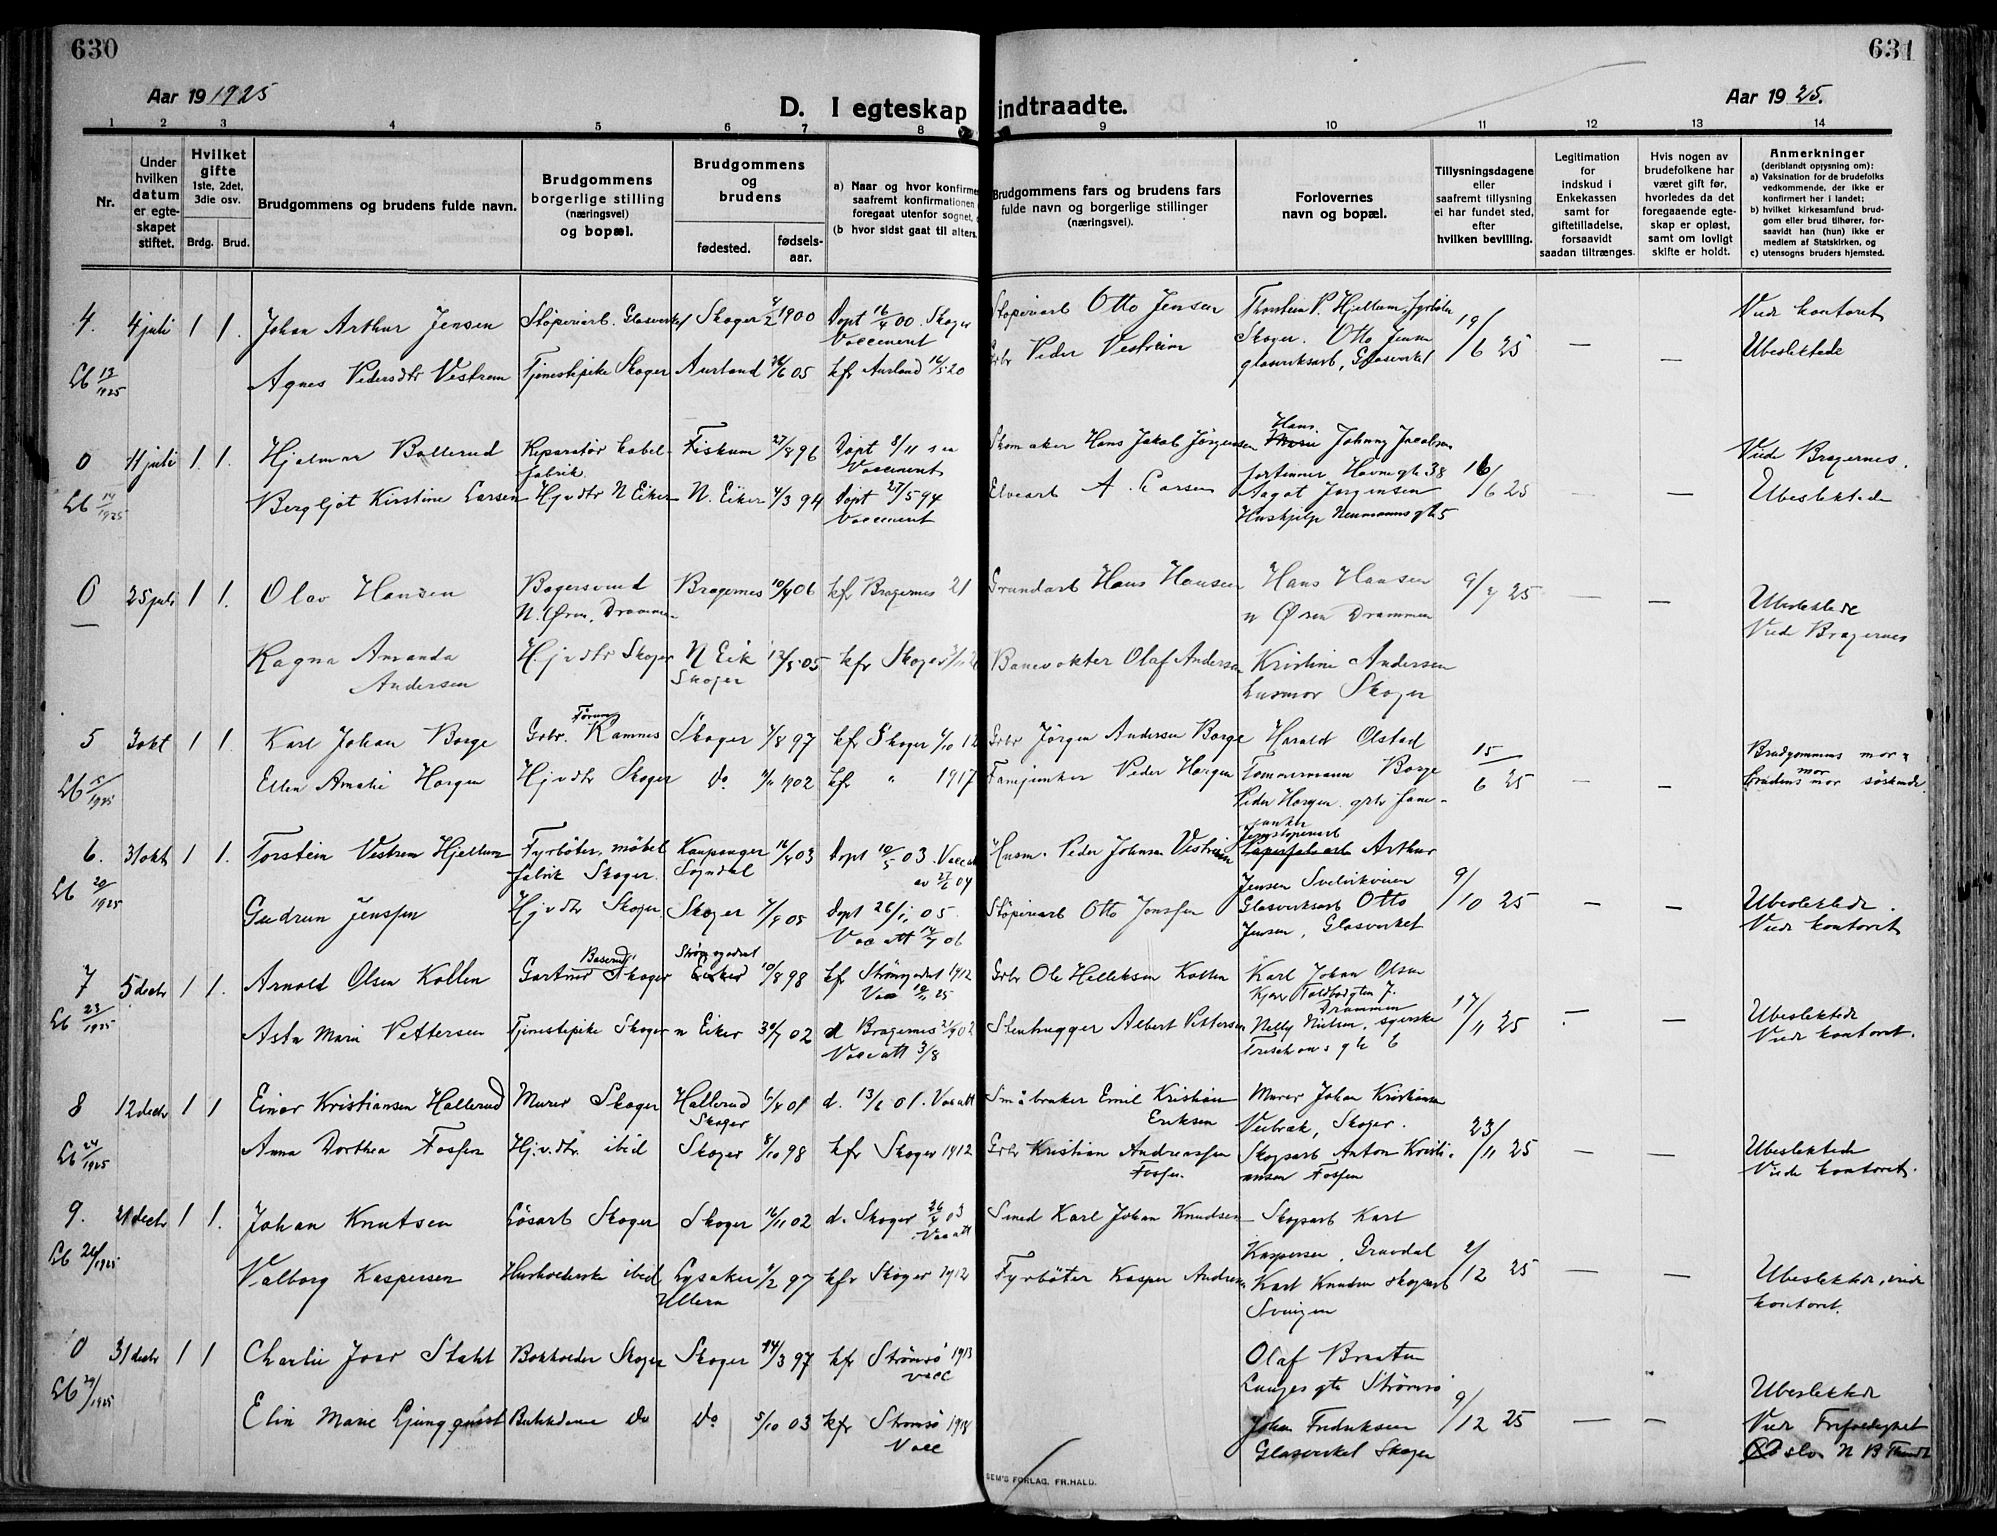 630
631
Aar 19 1925
D. I egteskap indtraadte.
Aar 19 25.
1 2 3 4 5 6 7 8 9 10 11 12 13 14
Nr.
Under hvilken datum er egte-skapet stiftet.
Hvilket gifte 1ste, 2det, 3die osv.
Brdg. Brud.
Brudgommens og brudens fulde navn.
Brudgommens borgerlige stilling (næringsvei) og bopæl.
Brudgommens og brudens
fødested. fødsels-aar.
a) Naar og hvor konfirme
saafremt konfirmationen
foregaat utenfor sognet,
(b hvor sidst gaat til alters.
Brudgommens fars og brudens fars
fulde navn og borgerlige stillinger
(næringsvei).
Forlovernes
navn og bopæl.
Tillysningsdagene
eller
saafremt tillysning
ei har fundet sted,
efter
hvilken bevilling.
Legitimation
for
indskud i
Enkekassen
samt for
giftetilladelse,
forsaavidt
saadan tiltrænges.
Hvis nogen av
brudefolkene har
været gift før,
hvorledes da det
foregaaende egte-
skap er opløst,
samt om lovligt
skifte er holdt.
Anmerkninger
(deriblandt oplysning om):
a) Vaksination for de brudefolks
vedkommende, der ikke er
konfirmert her i landet;
b) hvilket kirkesamfund brud-
gom eller brud tilhører, for-
saavidt han (hun) ikke er
medlem af Statskirken, og
c) utensogns bruders hjemsted.
4. 4 juli 1 1. Johan Arthur Jensen Støperiarb. Glasverket Skoger 4/2 1900 Døpt 16/4 00. Skoger Vaccinert Støperiarb Otto Jensen Thorstein P. Hjellum, fyrbøter Skoger. Otto Jensen glasverksarb, Glasverket 19/6 25 — — Viede kontoret
Lb 13/1925 Agnes Pedersdtr Vestrem Tjenestepike Skoger Aurland 26/6 05 kfr Aurland 16/5 20 Grbr Peder Vestreim Ubeslektede
0 11 juli 1. 1. Hjalmar Bollerud Reparatør kabelfabrik Fiskum 27/8 96 Døpt 8/11 s aa Vaccinert Skomaker Hans Jakob Jørgensen Hans Johnny Jacobsen fortinner Havnegt. 38 16/6 25 — — Viede Bragernes.
Lb 14/1925 Bergljot Kirstine Larsen Hjvdtr N Eiker N. Eiker 4/3 94 Døpt 27/5 94 Vaccinert Elvearb A. Larsen Aagot Jørgensen Hushjelp Neumannsgt 5 Ubeslektede
0 25 juli 1 1. Olav Hansen N. Øren, Drammen Bragernes 10/4 06 kfr Bragernes 21 Grundarb Hans Hansen Hans Hansen n Øren Drammen 9/7 25 — — Ubeslektede
Viede Bragernes
Ragna Amanda Andersen Hjvdtr Skoger N Eik Skoger 12/5 05 kfr Skoger Banevokter Olaf Andersen Kristine Andersen Husmor Skoger
5 3 okt 1 1. Karl Johan Borge Grbr. Rammes Skoger 7/8 97 kfr Skoger 6/10 12 Grbr Jørgen Andersen Borge Harald Olstad Tømmermann Borge 15/6 25 — — Brudgommens mor &
Lb 15/1925 Ellen Amalie Horgen Hjvdtr Skoger Do. 1902 kfr " 1917 Peder Horgen Peder Horgen grbr brudens mor søskende.
6. 31 okt 1 1. Torstein Vestrem Hjellum Fyrbøter, møbelfabrik Skoger. Kaupanger Sogndal 16/4 03 Døpt 10/5 03. Vacc av 27/6 04 Husm. Peder Johnsen Vestreim Arthur Jensen Svelvikveien 9/10 25 — — Ubeslektede.
Lb 20/1925 Gudrun Jenssen Hjvdtr Skoger. Skoger 7/9 05 Døpt 26/11 05. Vac att 14/7 06 Støperiarb Otto Jenssen Glasverksarb Otto Jensen, Glasverket Viede kontoret
7 5 decbr 1 1. Arnold Olsen Kollen Gartner Baserud Skoger Strømsgodset 10/8 98 kfr Strømsgodset 1912 Vac 10/11 25 Grbr Ole Helleksen Kollen Karl Johan Olsen Toldbodgten 7. Drammen 17/11 25 — — Ubeslektede
Lb 23/1925 Asta Marie Pettersen Tjenestepike Skoger n Eiker 30/7 02 d Bragernes 21/9 02 Vac att 3/8 Stenhugger Albert Pettersen Nelly Nielsen, syerske Treschous gt 6 Viede kontoret.
8 12 decbr 1 1 Einar Kristiansen Hallerud Murer Skoger Hallerud Skoger 6/4 01 d. 13/6 01. Vac att Småbruker Emil Kristian Eriksen Murer Johan Kristiansen Veibræk, Skoger. 23/11 25 — — Ubeslektede
Lb 24/1925 Anna Dorthea Fossen Hj.v.dtr. ibid Skoger 8/10 98 kfr Skoger 1912 Grbr Kristian Andreassen Fossen. Skogsarb Anton Kristiansen Fossen Viede kontoret.
9. 21 decbr 1 1. Johan Knutsen Løsarb Skoger Skoger 16/11 02 d. Skoger 26/4 03 Vac att Smed Karl Johan Knudsen Skogsarb Karl Kaspersen, Gravdal 2/12 25 — — Ubeslektede, viede kontoret.
Lb 26/1925 Valborg Kaspersen Husholderske ibid Lysaker Ullern 1/2 97 kfr Skoger 1912 Fyrbøter Kasper Andersen Karl Knudsen skogsarb Svingen
0 31 decbr 1 1 Charlie Joar Stahl Bokholder Skoger Skoger 14/3 97 kfr Strømsø 1913 vacc Olaf Braaten Langes gte Strømsø 9/12 25 — — Ubeslektede
Lb 29/1925 Elin Marie Ljungqquist Do Do 5/10 03 kfr Strømsø 1918 Vacc Johan Fredriksen Glasverket Skoger Viede Oslo N B
SEM'S FORLAG, FR.HALD.